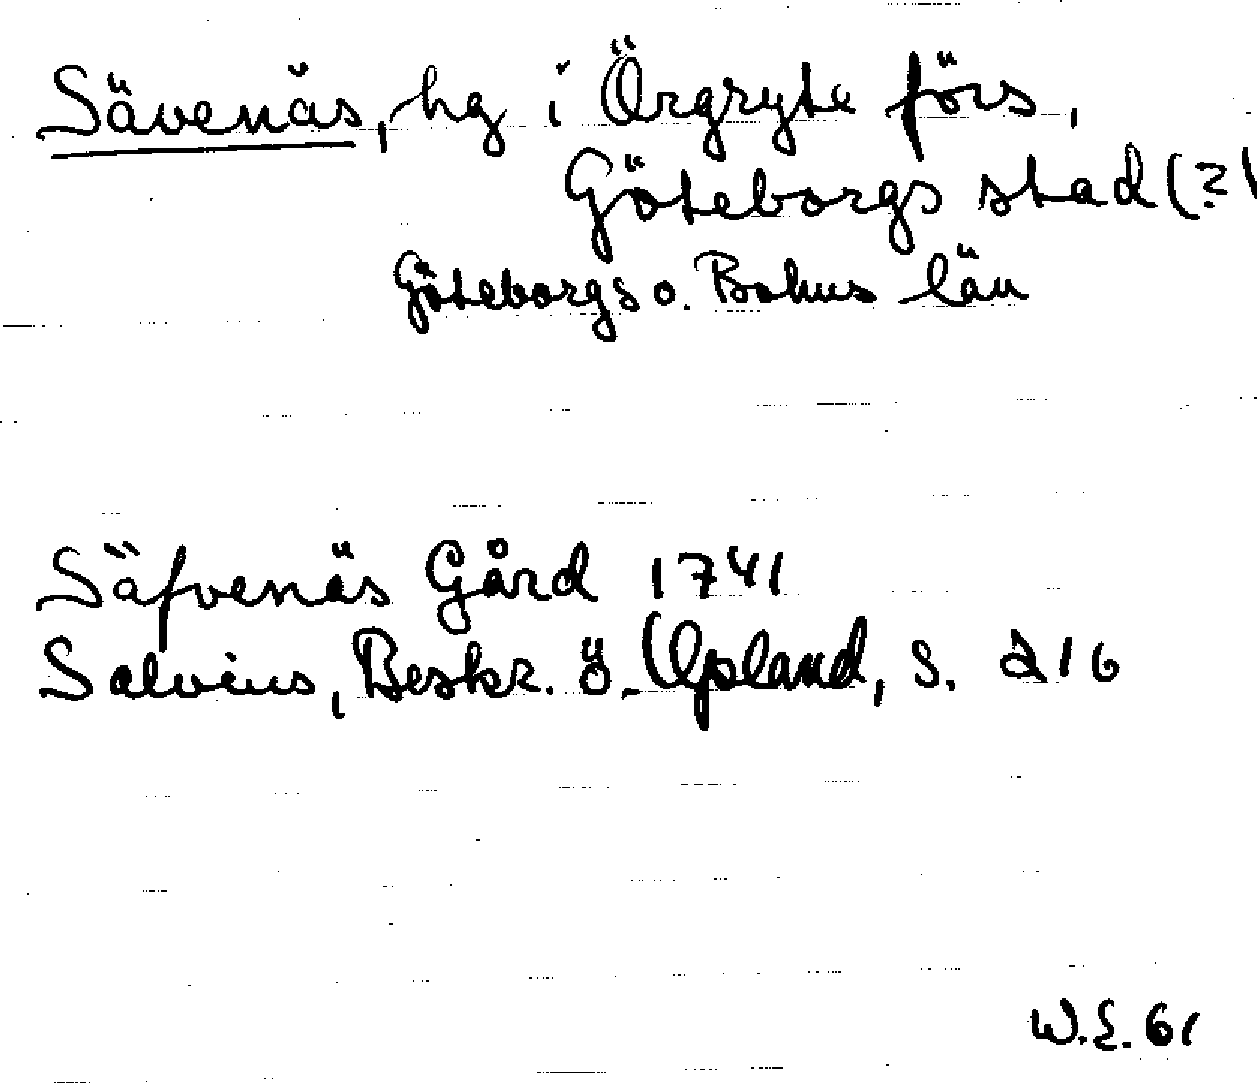 Sävenäs, hg i Örgryte förs,
Göteborgs stad (?)
Göteborgs o. Bohus län
Säfvenäs Gård 1741
Salvius, Beskr. ö. Upland, s. 216
W.E. 61